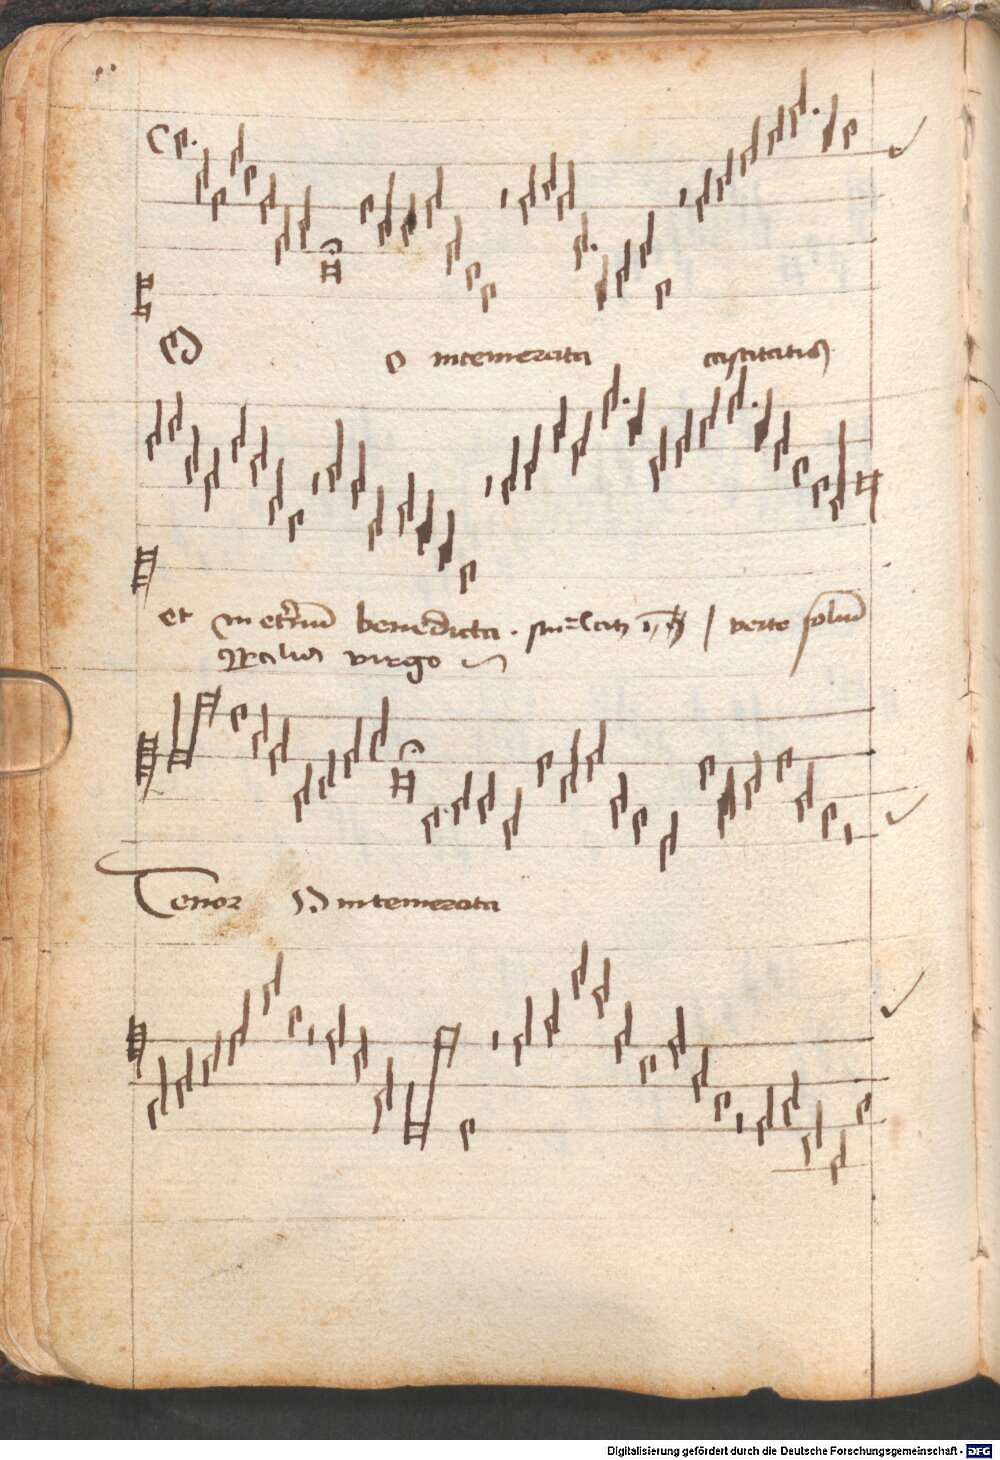 O O intemerata castitatis
et in et̄nū benedicta verte foliū
virgo
Tenor O intemerata
Digitalisierung gefördert durch die Deutsche Forschungsgemeinschaft - DFG